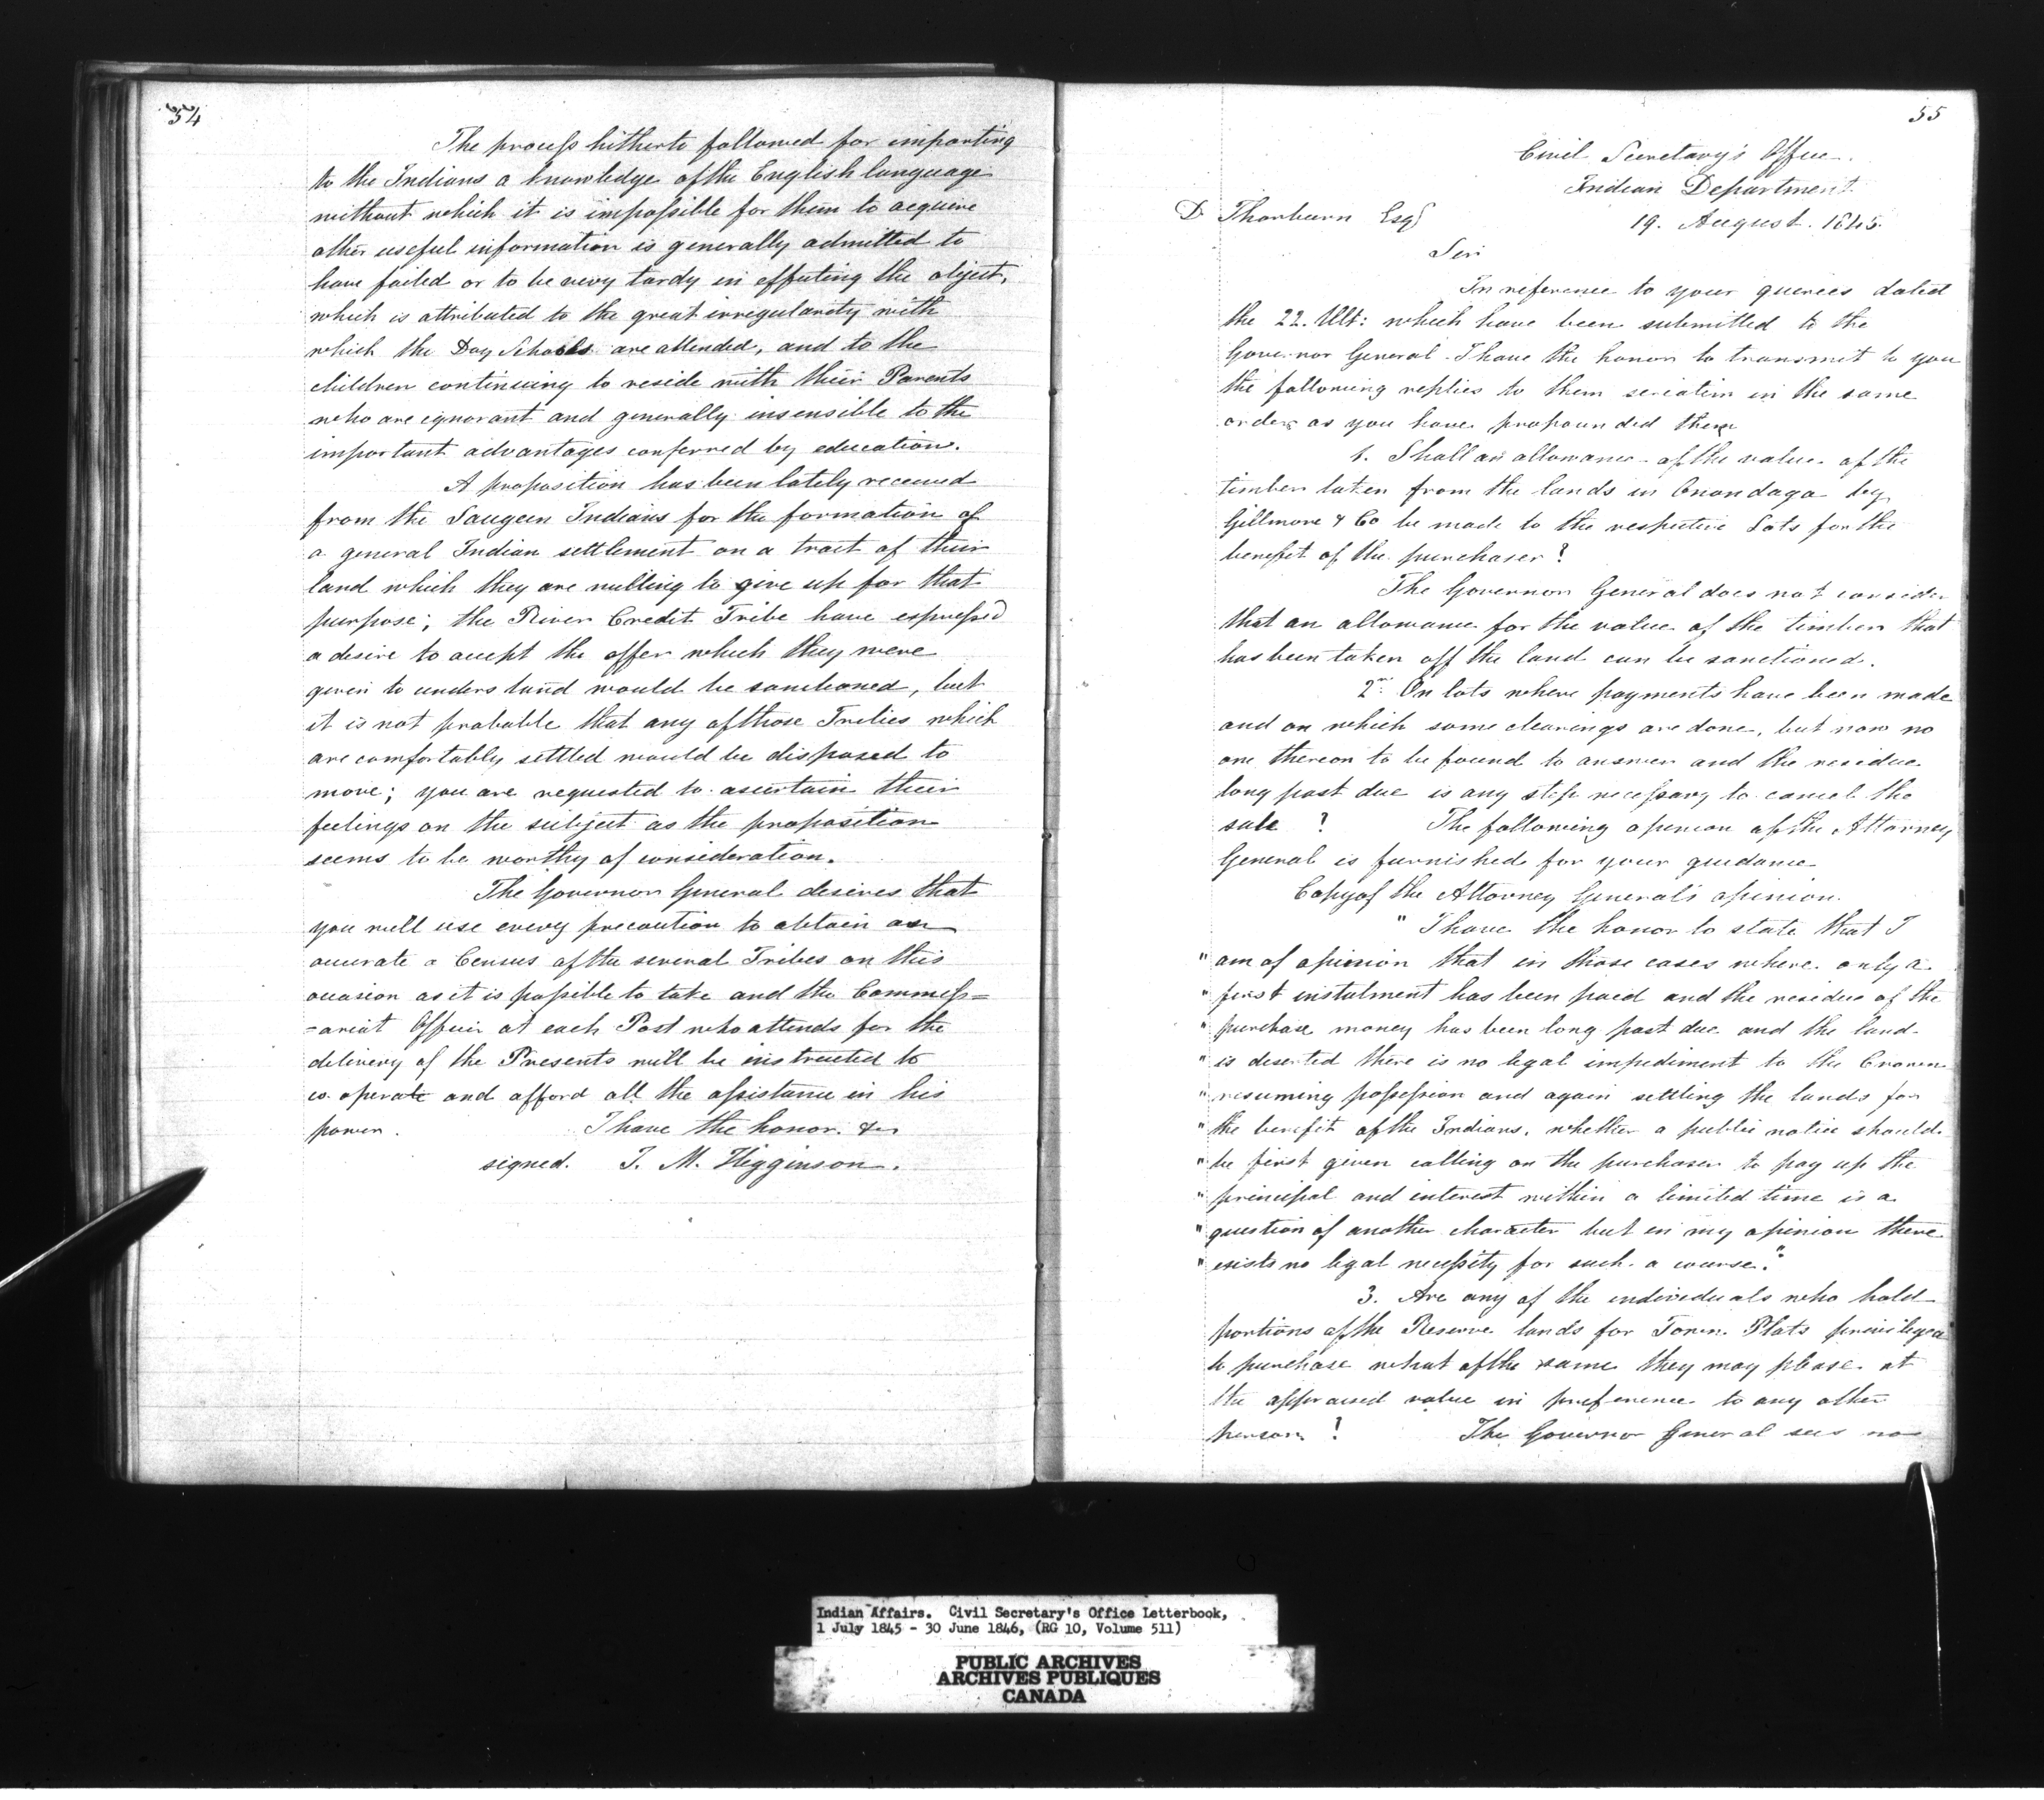 54
The process hitherto followed for imparting
to the Indians a knowledge of the English language
without which it is impossible for them to acquire
other useful information is generally admitted to
have failed or to be very tardy in effecting the object,
which is attributed to the great irregularity with
which the Day Schools are attended, and to the
children continuing to reside with their Parents
who are ignorant and generally insensible to the
important advantages conferred by education.
A proposition has been lately received
from the Saugeen Indians for the formation of
a general Indian settlement on a tract of their
land which they are willing to give up for that
purpose; the River Credit Tribe have expressed
a desire to accept the offer which they were
given to understand would be sanctioned, but
it is not probable that any of those Tribes which
are comfortably settled would be disposed to
move; you are requested to ascertain their
feelings on the subject as the proposition
seems to be worthy of consideration.
The Governor General desires that
you will use every precaution to obtain as
accurate a Census of the several Tribes on this
occasion as it is possible to take and the Commiss=
=ariat Officer at each Post who attends for the
delivery of the Presents will be instructed to
co operate and afford all the assistance in his
power. I have the honor &c
signed. J. M. Higginson.
55
Civil Secretary's Office.
Indian Department
19. August. 1845.
D Thorburn Esq
Sir
In reference to your queries dated
the 22. Ult: which have been submitted to the
Governor General I have the honor to transmit to you
the following replies to them seriatim in the same
order as you have propounded them
1. Shall an allowance of the value of the
timber taken from the lands in Onondaga by
Gillmore & Co be made to the respective Lots for the
benefit of the purchaser?
The Governor General does not consider
that an allowance for the value of the timber that
has been taken off the land can be sanctioned.
2. On lots where payments have been made
and on which some clearings are done, but now no
one thereon to be found to answer and the residue
long past due is any step necessary to cancel the
sale ? The following opinion of the Attorney
General is furnished for your guidance
Copy of the Attorney General's opinion.
" I have the honor to state that I
" am of opinion that in those cases where only a
" first instalment has been paid and the residue of the
" purchase money has been long past due and the land
" is deserted there is no legal impediment to the Crown
" resuming possession and again settling the lands for
" the benefit of the Indians, whether a public notice should
" be first given calling on the purchaser to pay up the
" principal and interest within a limited time is a
" question of another character but in my opinion there
" exists no legal necessity for such a course."
3. Are any of the individuals who hold
portions of the Reserve lands for Town Plats privileged
to purchase what of the same they may please at
the appraised value in preference to any other
person ? The Governor General sees no
Indian Affairs. Civil Secretary's Office Letterbook,
1 July 1845 - 30 June 1846, (RG 10, Volume 511)
PUBLIC ARCHIVES
ARCHIVES PUBLIQUES
CANADA